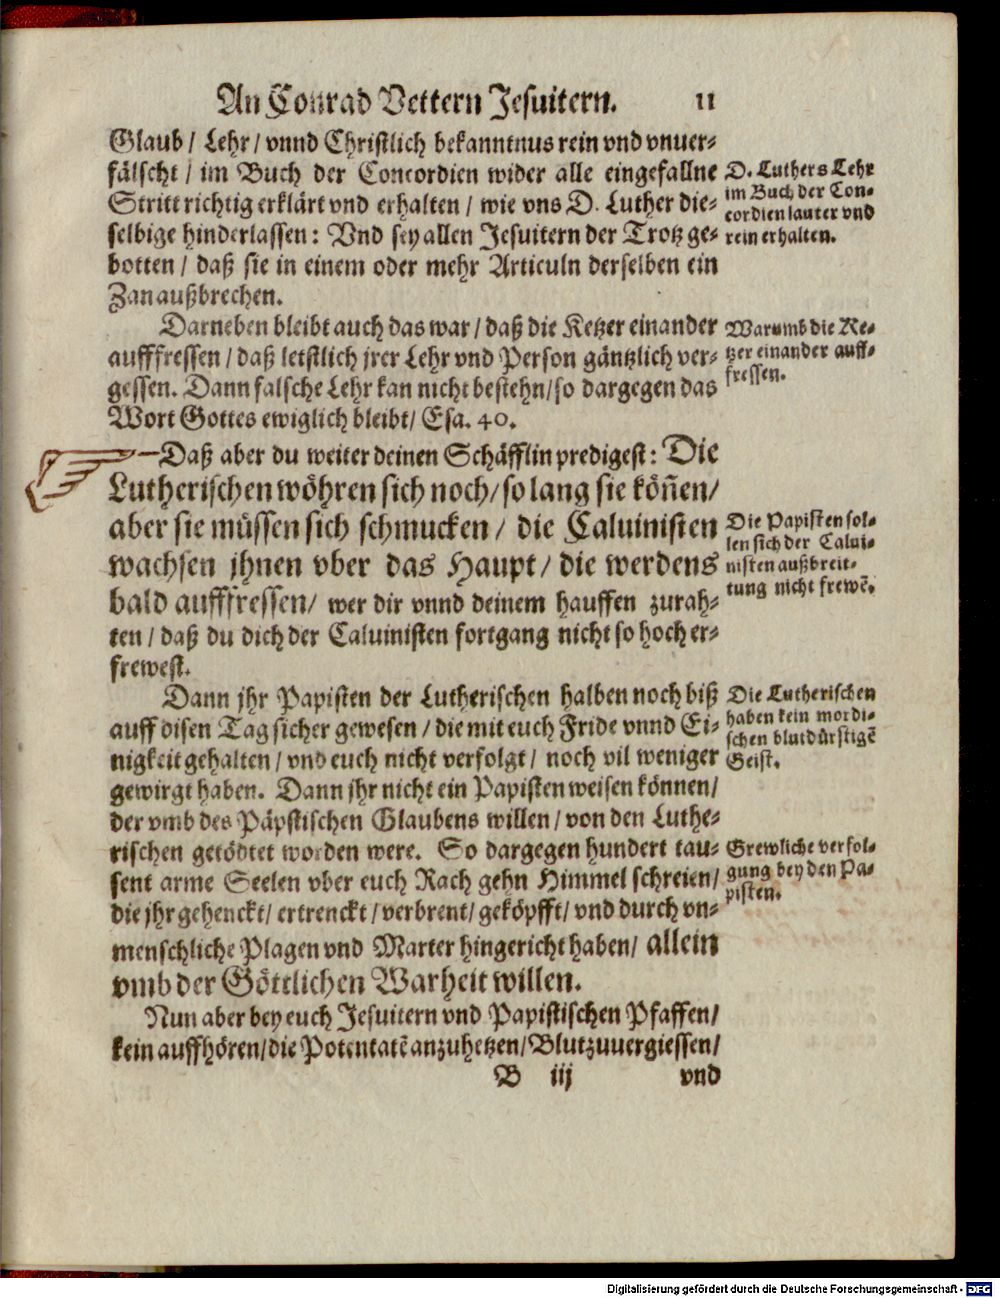 An Conrad Vettern Jesuitern. 11
Glaub / Lehr / vnnd Christlich bekanntnus rein vnd vnuer-
fälscht / im Buch der Concordien wider alle eingefallne
Stritt richtig erklärt vnd erhalten / wie vns D. Luther die-
selbige hinderlassen: Vnd sey allen Jesuitern der Trotz ge-
botten / daß sie in einem oder mehr Articuln derselben ein
Zan außbrechen.
D. Luthers Lehr
im Buch der Con-
cordien lauter vnd
rein erhalten.
Darneben bleibt auch das war / daß die Ketzer einander
aufffressen / daß letstlich jrer Lehr vnd Person gäntzlich ver-
gessen. Dann falsche Lehr kan nicht bestehn / so dargegen das
Wort Gottes ewiglich bleibt / Esa. 40.
Warumb die Ke-
tzer einander auff-
fressen.
Daß aber du weiter deinen Schäfflin predigest: Die
Lutherischen wöhren sich noch / so lang sie köñen /
aber sie müssen sich schmucken / die Caluinisten
wachsen jhnen vber das Haupt / die werdens
bald aufffressen / wer dir vnnd deinem hauffen zurah-
ten / daß du dich der Caluinisten fortgang nicht so hoch er-
frewest.
Die Papisten sol-
len sich der Calui-
nisten außbreit-
tung nicht frewē.
Dann jhr Papisten der Lutherischen halben noch biß
auff disen Tag sicher gewesen / die mit euch Fride vnnd Ei-
nigkeit gehalten / vnd euch nicht verfolgt / noch vil weniger
gewirgt haben. Dann jhr nicht ein Papisten weisen können /
der vmb des Päpstischen Glaubens willen / von den Luthe-
rischen getödtet worden were. So dargegen hundert tau-
sent arme Seelen vber euch Rach gehn Himmel schreien /
die jhr gehenckt / ertrenckt / verbrent / geköpfft / vnd durch vn-
menschliche Plagen vnd Marter hingericht haben / allein
vmb der Göttlichen Warheit willen.
Die Lutherischen
haben kein mordi-
schen blutdürstigē
Geist.
Grewliche verfol-
gung bey den Pa-
pisten.
Nun aber bey euch Jesuitern vnd Papistischen Pfaffen /
kein auffhören / die Potentatē anzuhetzen / Blut zuuergiessen /
B iij vnd
Digitalisierung gefördert durch die Deutsche Forschungsgemeinschaft - DFG